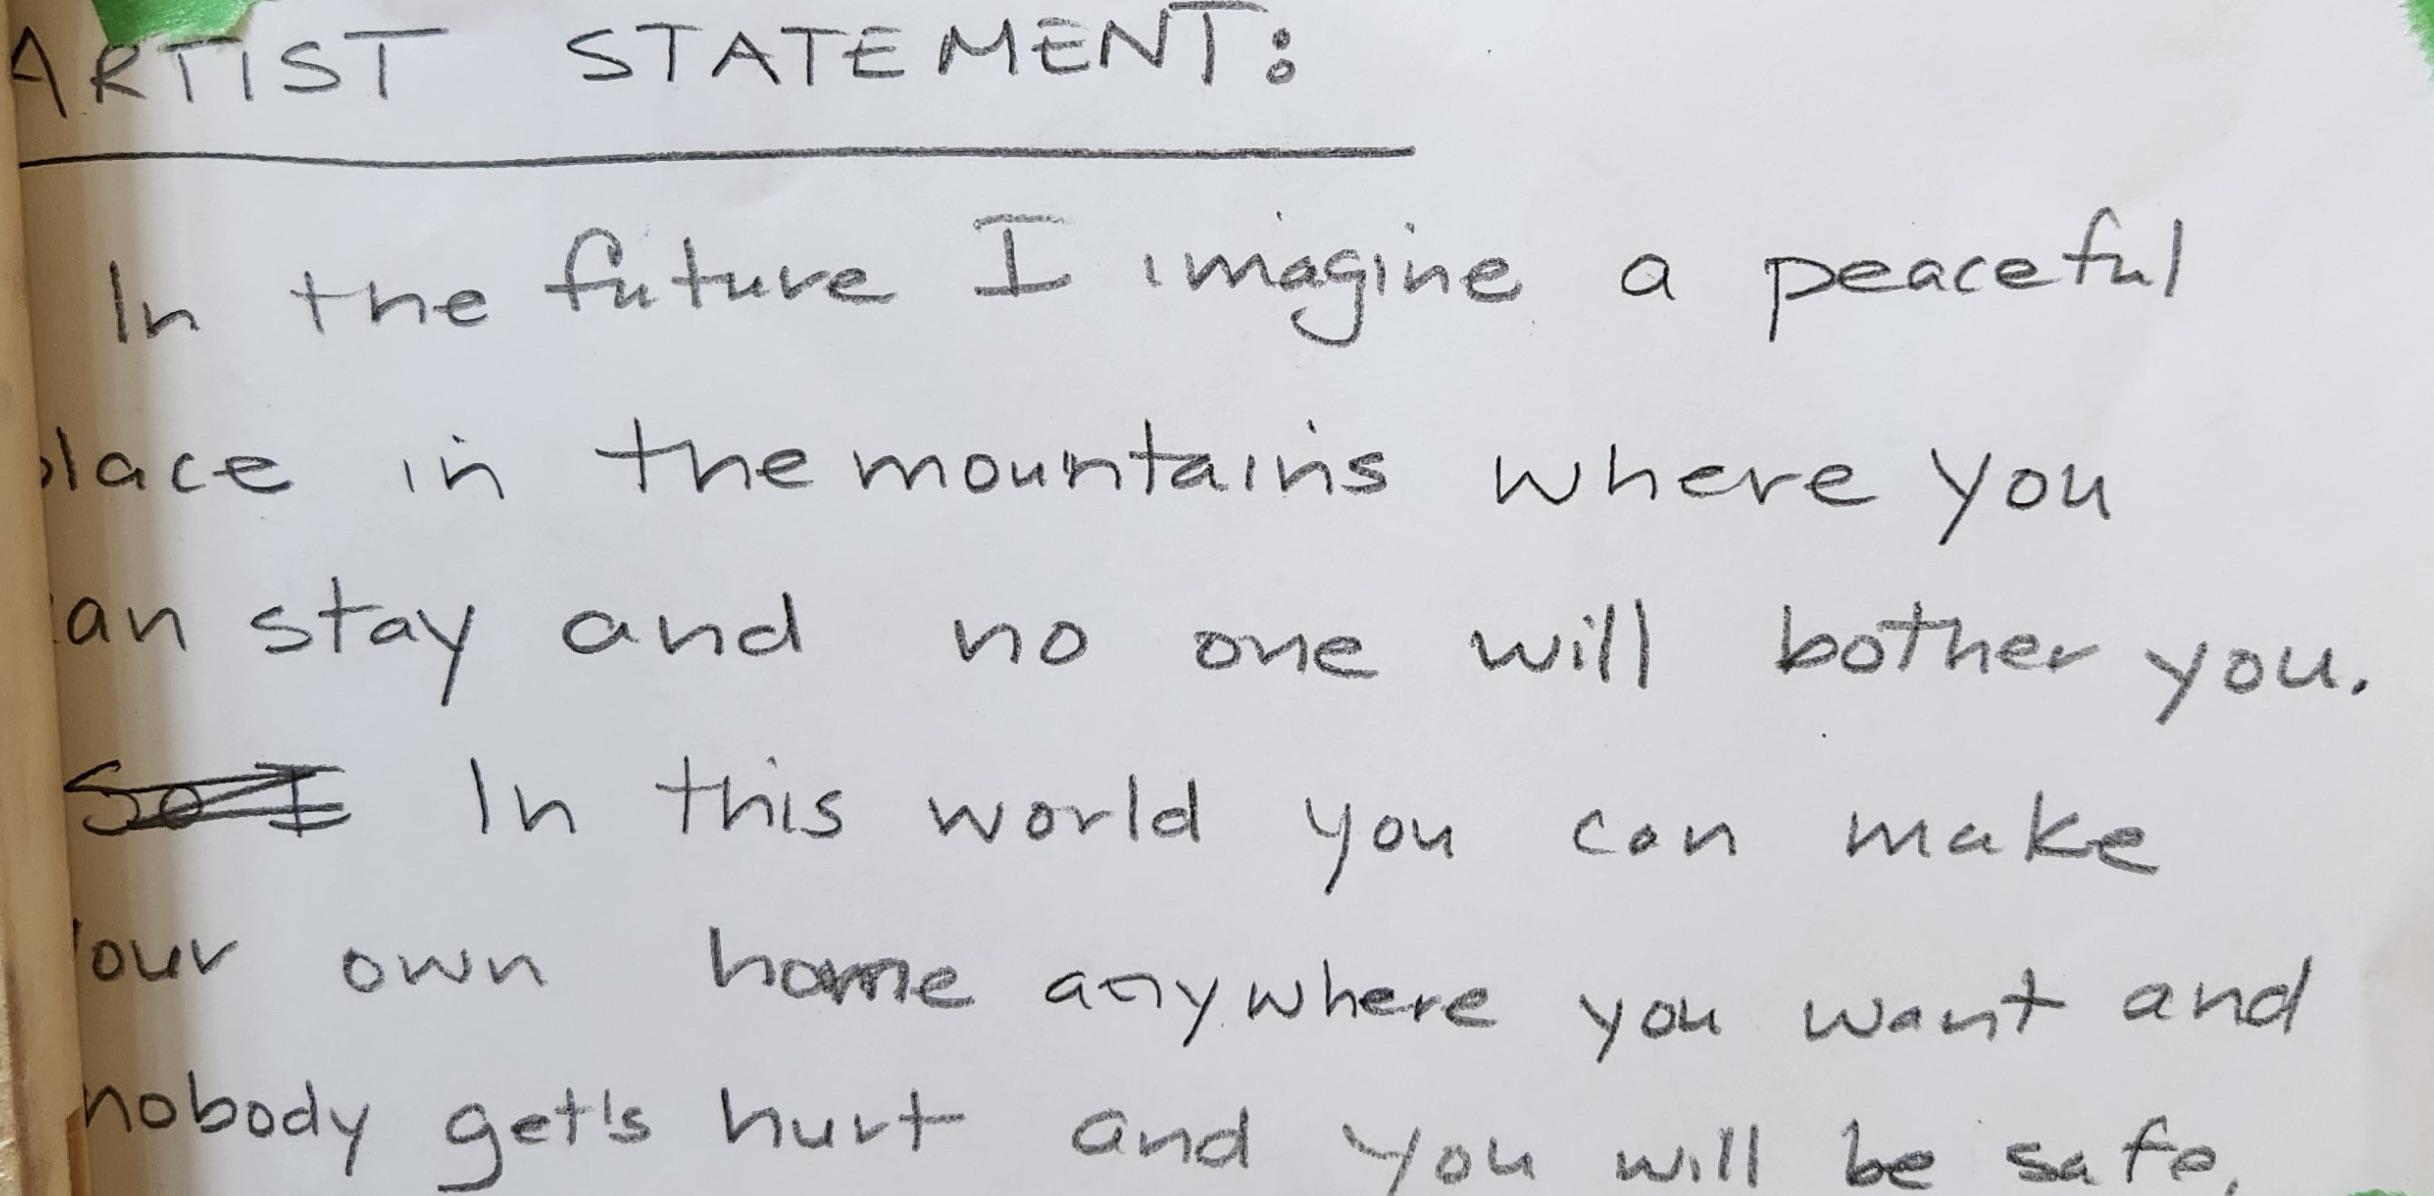 ARTIST STATEMENT:
In the future I imagine a peaceful
place in the mountains where you
can stay and no one will bother you.
So I In this world you can make
your own home anywhere you want and
nobody get's hurt and you will be safe.